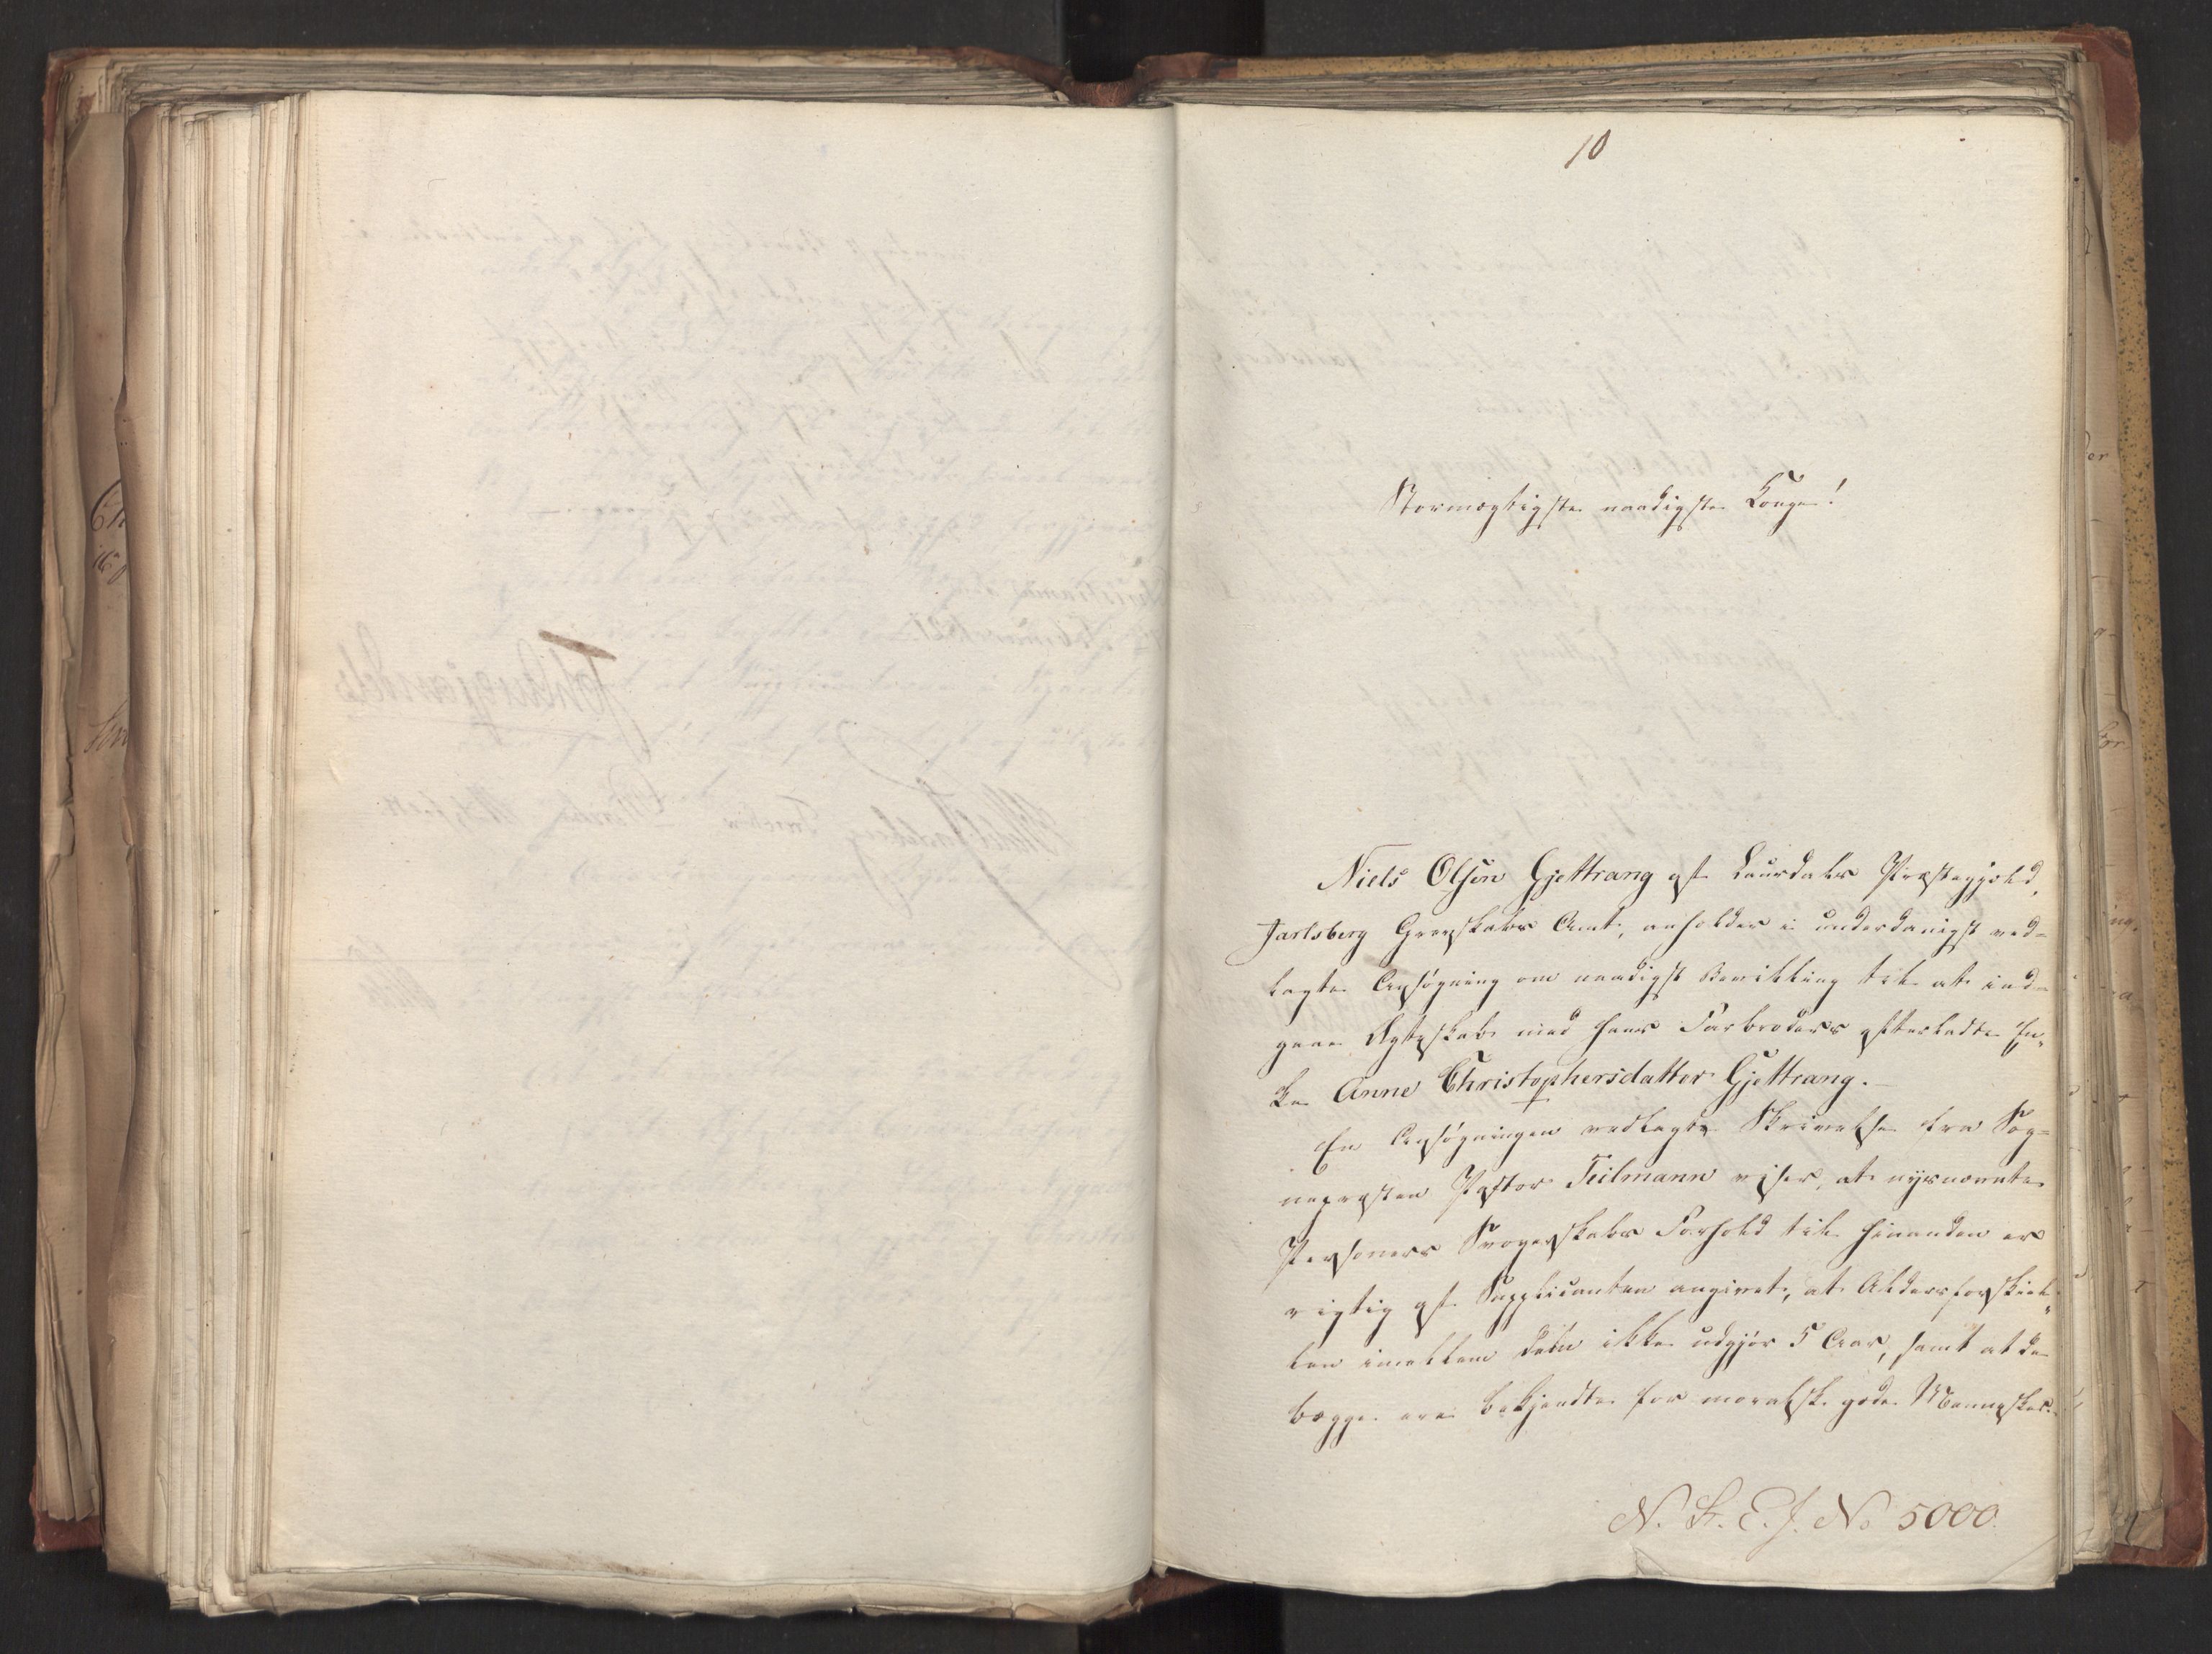 10
Stormægtigste naadigste Konge!
Niels Olsen Gjettrang af Laurdals Præstegjeld,
Jarlsberg Grevskabs Amt, anholder i underdanigst ved-
lagte Ansøgning om naadigst Bevilling til at ind-
gaae Ægteskab med hans Farbroders efterladte En-
ke Anne Christophersdatter Gjettrang.
En Ansøgningen vedlagte Skrivelse fra Sog-
nepræsten Pastor Teilmann viser, at nysnævnte
Personers Svogerskabs Forhold til hinanden er
rigtig af Supplicanten angivet, at Aldersforskiel-
len imellem dem ikke udgjør 5 Aar, samt at de
begge ere bekjendte for moralsk gode Mennesker.
N. St. E. J. No 5000.